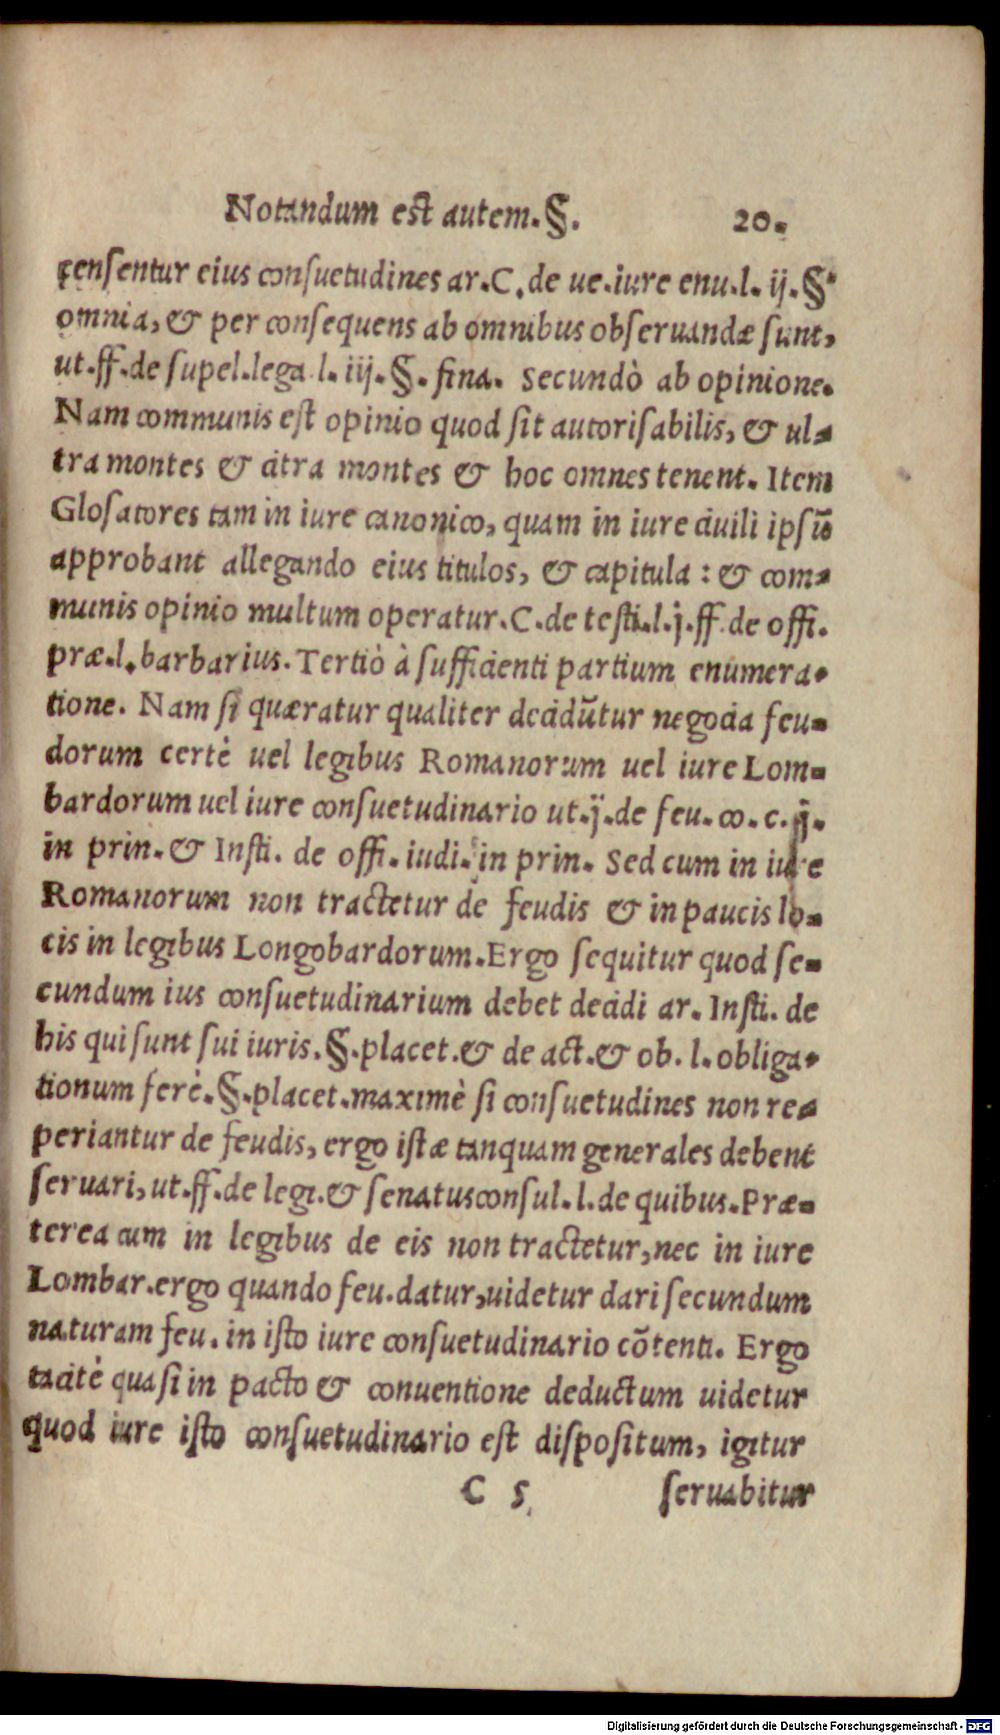 Notandum est autem.§. 20.
censentur eius consuetudines ar.C.de ue.iure enu.l.ij.§.
omnia, & per consequens ab omnibus obseruandæ sunt,
ut.ff.de supel.lega.l.iij.§.fina. Secundò ab opinione.
Nam communis est opinio quod sit autorisabilis, & ul-
tra montes & citra montes & hoc omnes tenent. Item
Glosatores tam in iure canonico, quam in iure ciuili ipsũ
approbant allegando eius titulos, & capitula : & com-
munis opinio multum operatur.C.de testi.l.j.ff.de offi.
præ.l.barbarius.Tertiò à sufficienti partium enumera-
tione. Nam si quæratur qualiter decidũtur negocia feu-
dorum certè uel legibus Romanorum uel iure Lom-
bardorum uel iure consuetudinario ut.ij.de feu.co.c.j.
in prin.& Insti. de offi.iudi.in prin. Sed cum in iure
Romanorum non tractetur de feudis & in paucis lo-
cis in legibus Longobardorum.Ergo sequitur quod se-
cundum ius consuetudinarium debet decidi ar. Insti. de
his qui sunt sui iuris.§.placet.& de act.& ob.l.obliga-
tionum ferè.§.placet.maximè si consuetudines non re-
periantur de feudis, ergo istæ tanquam generales debent
seruari, ut.ff.de legi.& senatusconsul.l.de quibus.Præ-
terea cum in legibus de eis non tractetur,nec in iure
Lombar.ergo quando feu.datur,uidetur dari secundum
naturam feu.in isto iure consuetudinario cõtenti. Ergo
tacitè quasi in pacto & conuentione deductum uidetur
quod iure isto consuetudinario est dispositum, igitur
C 5 seruabitur
Digitalisierung gefördert durch die Deutsche Forschungsgemeinschaft - DFG